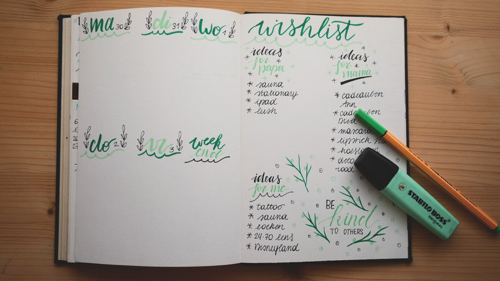 ma 30 di 31 wo 1
do 2 vr week
end
wishlist
ideas
for
papa
* sauna
* stationary
* ipad
* lush
ideas
for
mama
* cadeaubon
* mascara
ideas
for me
* tattoo
* sauna
* sokken
* 24-70 lens
* Disneyland
BE
kind
TO OTHERS
STABILO BOSS